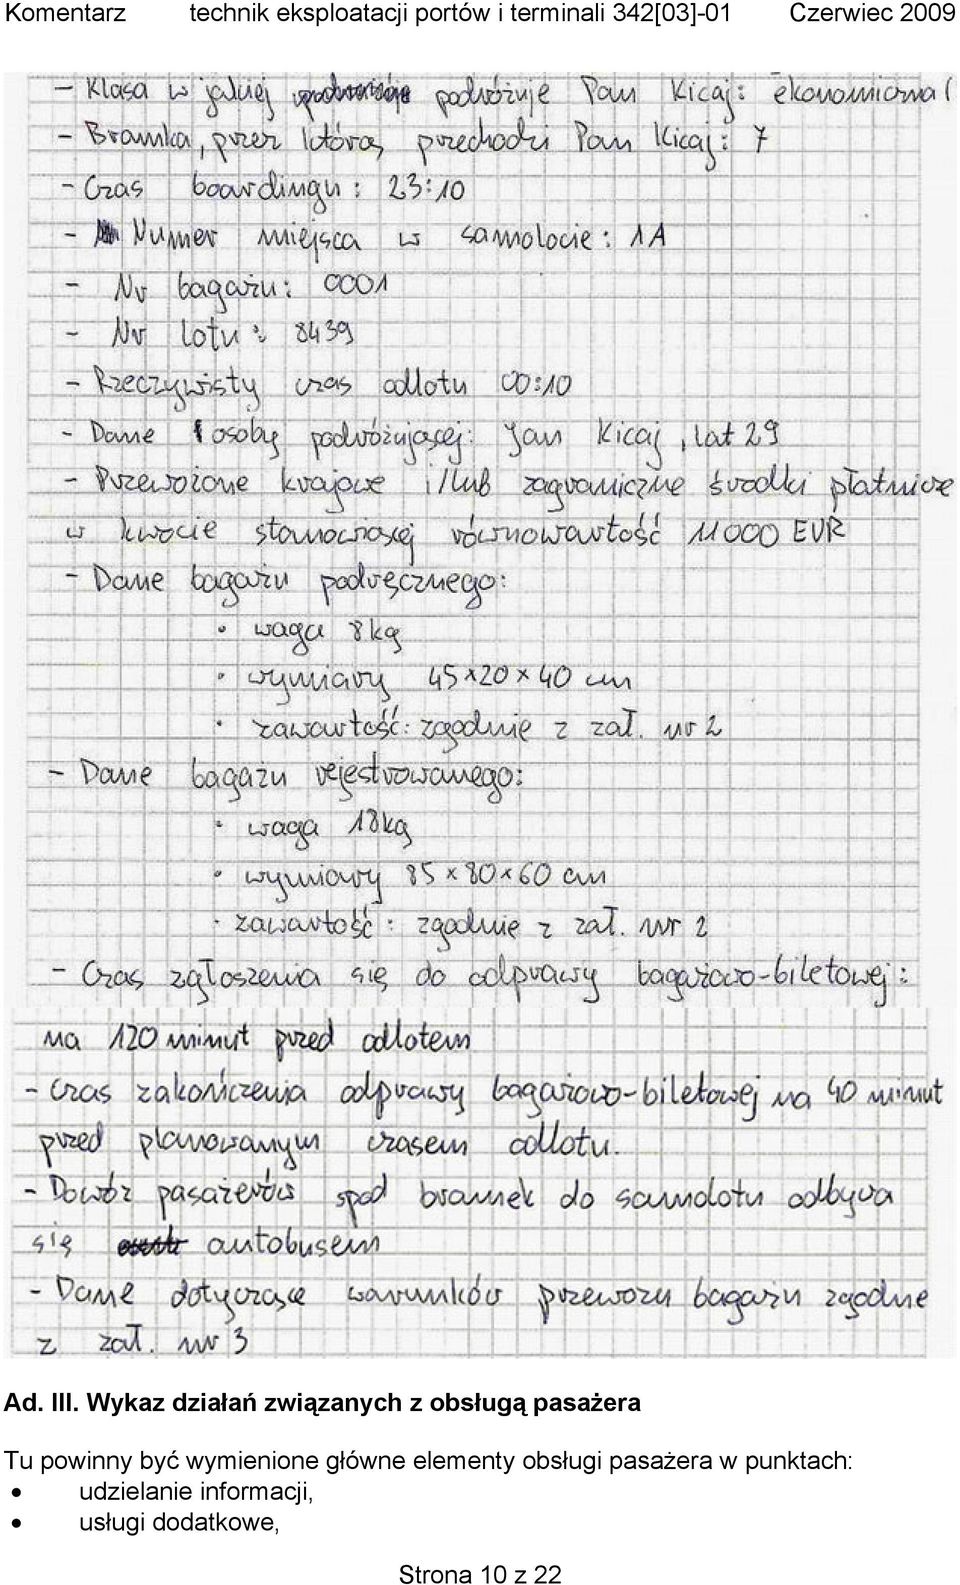 Komentarz technik eksploatacji portów i terminali 342[03]-01 Czerwiec 2009
- Klasa w jakiej podróżuje Pan Kicaj: ekonomiczna (
- Bramka, przez którą przechodzi Pan Kicaj: 7
- Czas boardingu: 23:10
- Numer miejsca w samolocie: 1A
- Nr bagażu: 0001
- Nr lotu: 8439
- Rzeczywisty czas odlotu 00:10
- Dane osoby podróżującej: Jan Kicaj, lat 29
- Przewożone krajowe i/lub zagraniczne środki płatnicze
w kwocie stanowiącej równowartość 11000 EUR
- Dane bagażu podręcznego:
• waga 8kg
• wymiary 45x20x40 cm
• zawartość: zgodnie z zał. nr 2
- Dane bagażu rejestrowanego:
• waga 18kg
• wymiary 85x80x60 cm
• zawartość: zgodnie z zał. nr 2
- Czas zgłoszenia się do odprawy bagażowo-biletowej:
na 120 minut przed odlotem
- Czas zakończenia odprawy bagażowo-biletowej na 40 minut
przed planowanym czasem odlotu.
- Dowóz pasażerów spod bramek do samolotu odbywa
się autobusem
- Dane dotyczące warunków przewozu bagażu zgodne
z zał. nr 3
Ad. III. Wykaz działań związanych z obsługą pasażera
Tu powinny być wymienione główne elementy obsługi pasażera w punktach:
• udzielanie informacji,
• usługi dodatkowe,
Strona 10 z 22